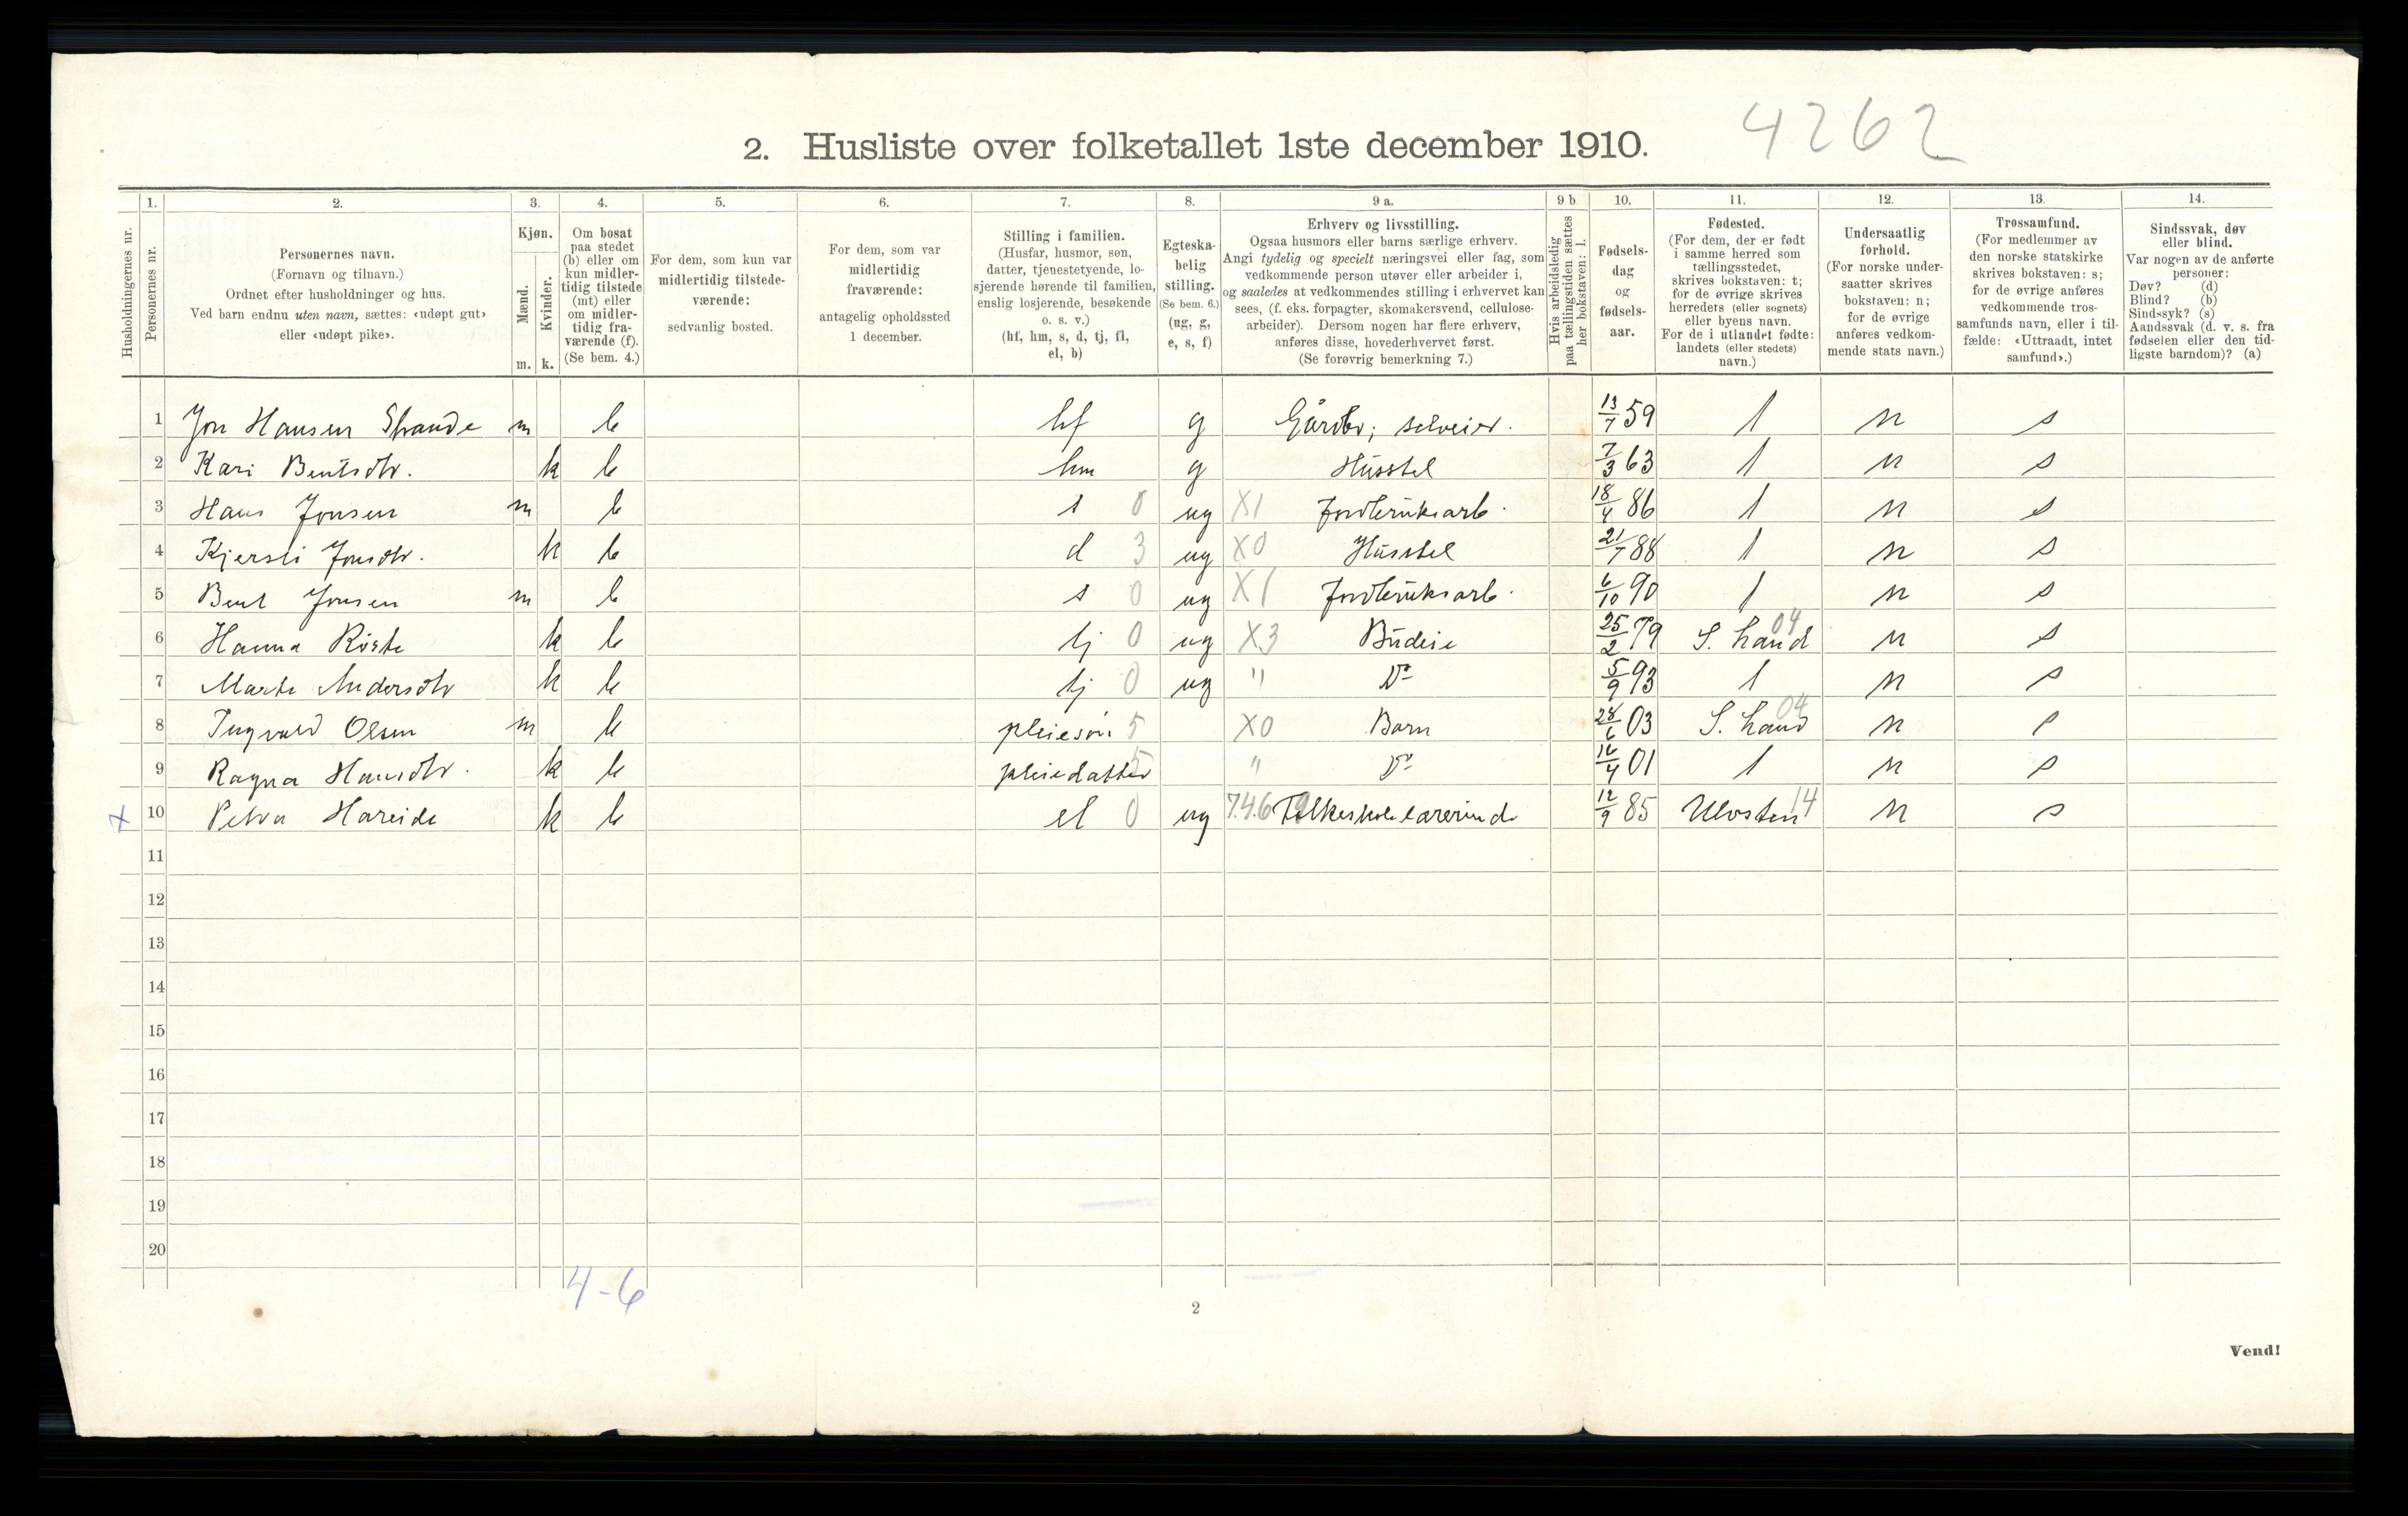 4262
2. Husliste over folketallet 1ste december 1910.
1. 2. 3. 4. 5. 6. 7. 8. 9 a. 9 b 10. 11. 12. 13. 14.
Husholdningernes nr.
Personernes nr.
Personernes navn.
(Fornavn og tilnavn.)
Ordnet efter husholdninger og hus.
Ved barn endnu uten navn, sættes: «udøpt gut»
eller «udøpt pike».
Kjøn.
Mænd.
Kvinder.
m. k.
Om bosat
paa stedet
(b) eller om
kun midler-
tidig tilstede
(mt) eller
om midler-
tidig fra-
værende (f).
(Se bem. 4.)
For dem, som kun var
midlertidig tilstede-
værende:
sedvanlig bosted.
For dem, som var
midlertidig
fraværende:
antagelig opholdssted
1 december.
Stilling i familien.
(Husfar, husmor, søn,
datter, tjenestetyende, lo-
sjerende hørende til familien,
enslig losjerende, besøkende
o. s. v.)
(hf, hm, s, d, tj, fl,
el, b)
Egteska-
belig
stilling.
(Se bem. 6.)
(ug, g,
e, s, f)
Erhverv og livsstilling.
Ogsaa husmors eller barns særlige erhverv.
Angi tydelig og specielt næringsvei eller fag, som
vedkommende person utøver eller arbeider i,
og saaledes at vedkommendes stilling i erhvervet kan
sees, (f. eks. forpagter, skomakersvend, cellulose-
arbeider). Dersom nogen har flere erhverv,
anføres disse, hovederhvervet først.
(Se forøvrig bemerkning 7.)
Hvis arbeidsledig
paa tællingstiden sættes
her bokstaven: l.
Fødsels-
dag
og
fødsels-
aar.
Fødested.
(For dem, der er født
i samme herred som
tællingsstedet,
skrives bokstaven: t;
for de øvrige skrives
herredets (eller sognets)
eller byens navn.
For de i utlandet fødte:
landets (eller stedets)
navn.)
Undersaatlig
forhold.
(For norske under-
saatter skrives
bokstaven: n;
for de øvrige
anføres vedkom-
mende stats navn.)
Trossamfund.
(For medlemmer av
den norske statskirke
skrives bokstaven: s;
for de øvrige anføres
vedkommende tros-
samfunds navn, eller i til-
fælde: «Uttraadt, intet
samfund».)
Sindssvak, døv
eller blind.
Var nogen av de anførte
personer:
Døv? (d)
Blind? (b)
Sindssyk? (s)
Aandssvak (d. v. s. fra
fødselen eller den tid-
ligste barndom)? (a)
1 Jon Hansen Strande m b hf g Gårdbr; selveier. 13/7 59 t n s
2 Kari Bentsdtr. k b hm g Husstel 7/3 63 t n s
3 Hans Jonsen m b s 0 ug X1 Jordbruksarb. 18/4 86 t n s
4 Kjersti Jonsdtr. k b d 3 ug X0 Husstel 21/7 88 t n s
5 Bent Jonsen m b s 0 ug X1 Jordbruksarb. 6/10 90 t n s
6 Hanna Röste k b tj 0 ug X3 Budeie 25/2 79 S. Land 04 n s
7 Marte Andersdtr k b tj 0 ug " Do 5/9 93 t n s
8 Ingvald Olsen m b pleiesøn 5 X0 Barn 28/6 03 S. Land 04 n s
9 Ragna Hansdtr. k b pleiedatter 5 " Do 01 t n s
X 10 Petra Hareide k b el 0 ug 7.4.6 Folkeskolelærerinde 12/9 85 Ulvsten 14 n s
11
12
13
14
15
16
17
18
19
20
4-6
2
Vend!